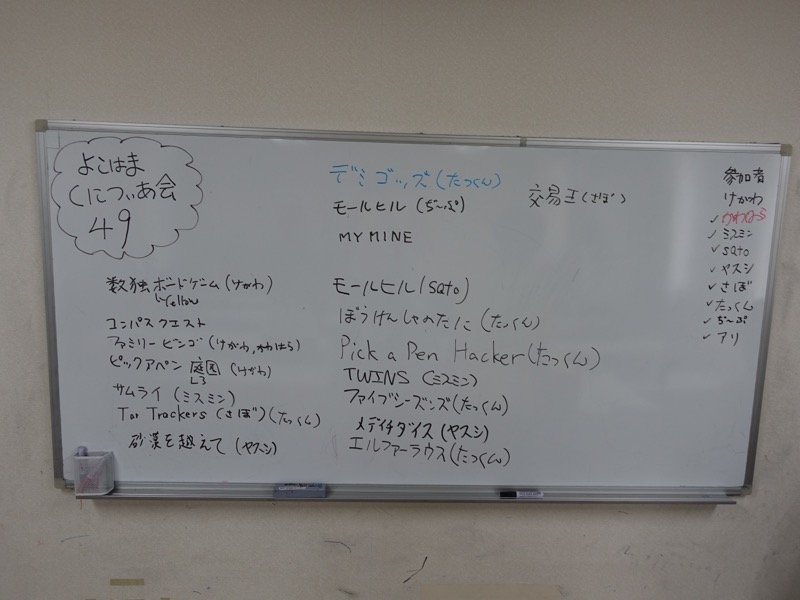 よこはま
くにつぃあ会
49
数独ボードゲーム(けがわ)
↳Yellow
コンパスクエスト
ファミリービンゴ(けがわ,かわはら)
ピックアペン 庭園(けがわ)
L3
サムライ(ミスミン)
Tar Trackers(さぼ)(たっくん)
砂漠を越えて(ヤスシ)
デミゴッズ(たっくん)
モールヒル(ぢ〜ぷ)
MY MINE
モールヒル(sato)
ぼうけんしゃのたに(たっくん)
Pick a Pen Hacker(たっくん)
TWINS(ミスミン)
ファイブシーズンズ(たっくん)
メディチダイス(ヤスシ)
エルファーラウス(たっくん)
交易王(さぼ)
参加者
けがわ
✓
✓ ミスミン
✓ sato
✓ ヤスシ
✓ さぼ
✓ たっくん
✓ ぢ〜ぷ
✓ アリ